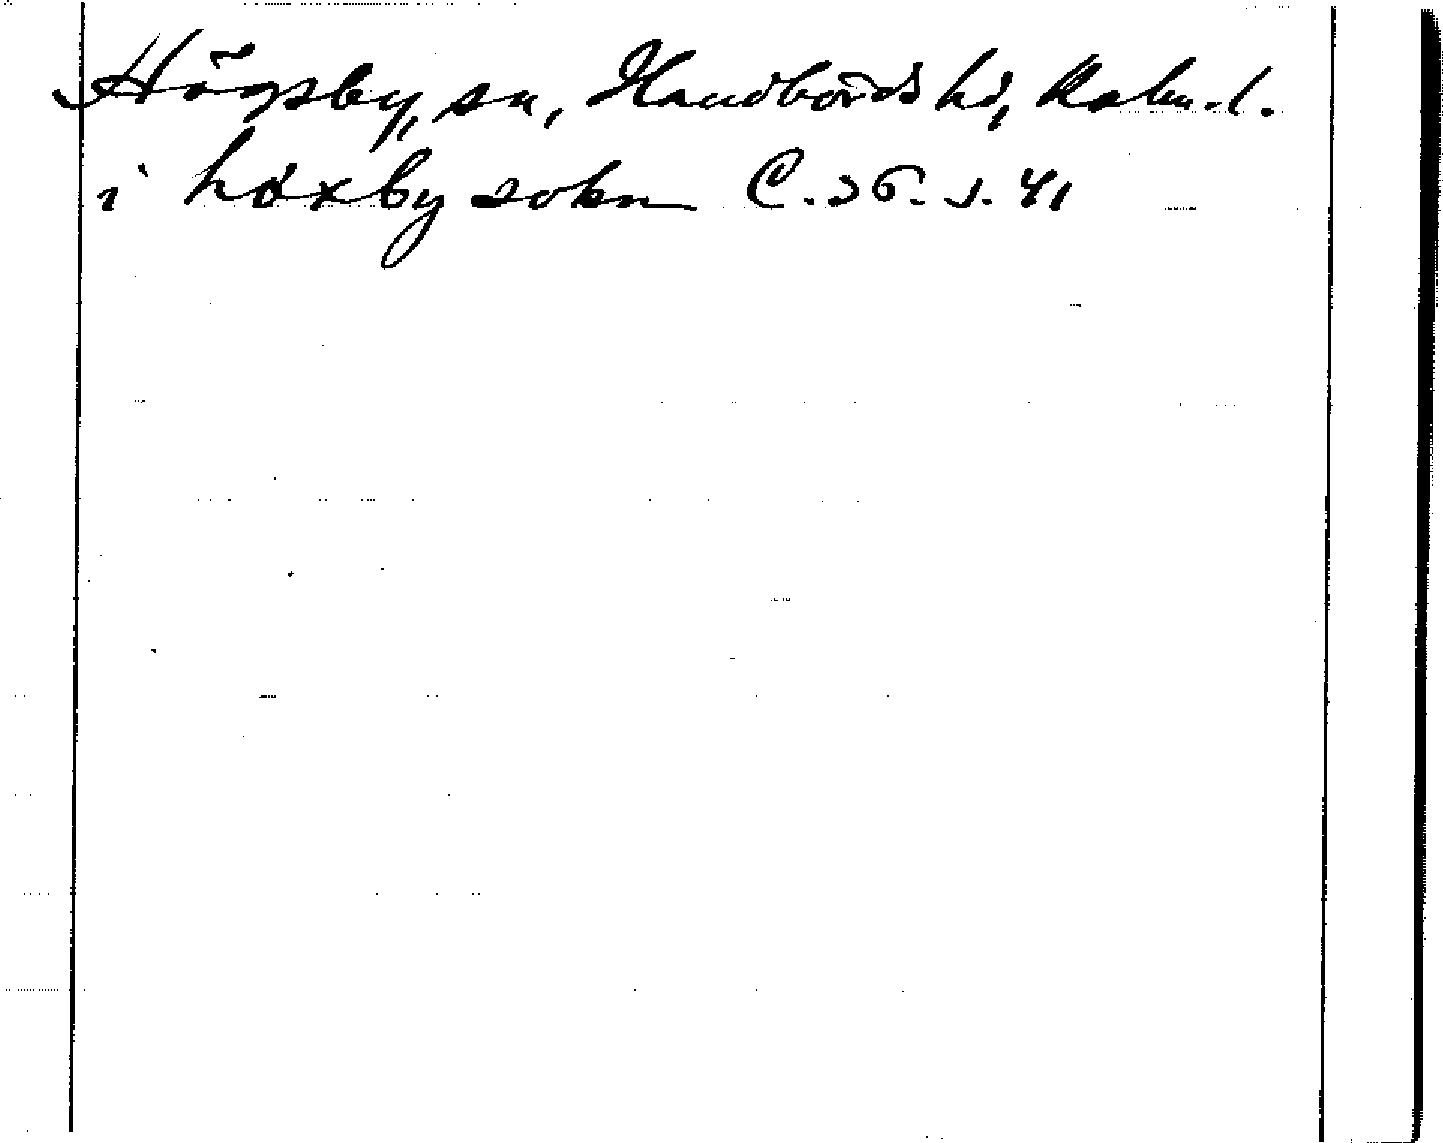 Högsby, sn, Handbörds hd, Kalm. l.
i höxby sokn C. 36. s. 41